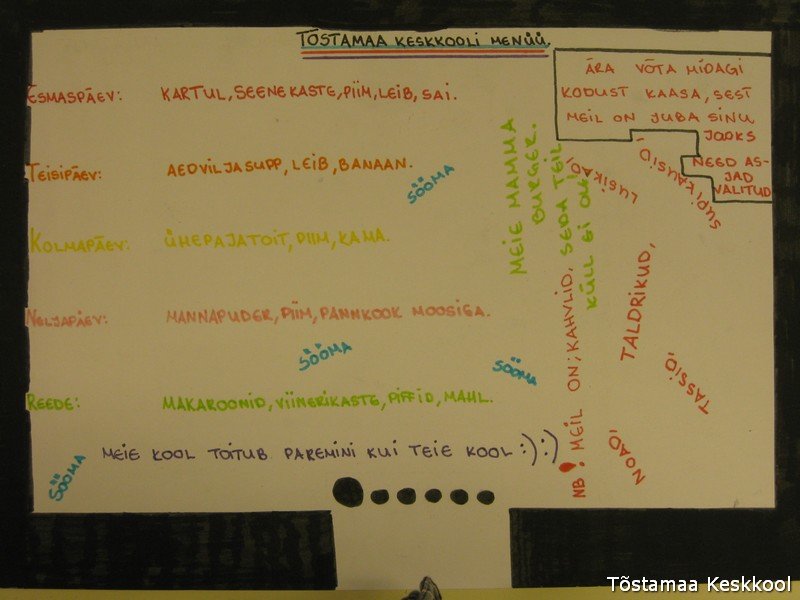 TÕSTAMAA KESKKOOLI MENÜÜ.
ESMASPÄEV: KARTUL, SEENEKASTE, PIIM, LEIB, SAI.
TEISIPÄEV: AEDVILJASUPP, LEIB, BANAAN.
SÖÖMA
KOLMAPÄEV: ÜHEPAJATOIT, PIIM, KAMA.
NELJAPÄEV: MANNAPUDER, PIIM, PANNKOOK MOOSIGA.
SÖÖMA
SÖÖMA
REEDE: MAKAROONID, VIINERIKASTE, PIFFID, MAHL.
MEIE KOOL TOITUB PAREMINI KUI TEIE KOOL :) :)
SÖÖMA
MEIE MAMMA
BURGER.
SEDA TEIL
KÜLL EI OLE
ÄRA VÕTA MIDAGI
KODUST KAASA, SEST
MEIL ON JUBA SINU
JAOKS
NEED AS-
JAD
VALITUD
NB! MEIL ON; KAHVLID,
LUSIKAD,
SUPIKAUSID,
TALDRIKUD,
TASSID,
NOAD,
Tõstamaa Keskkool